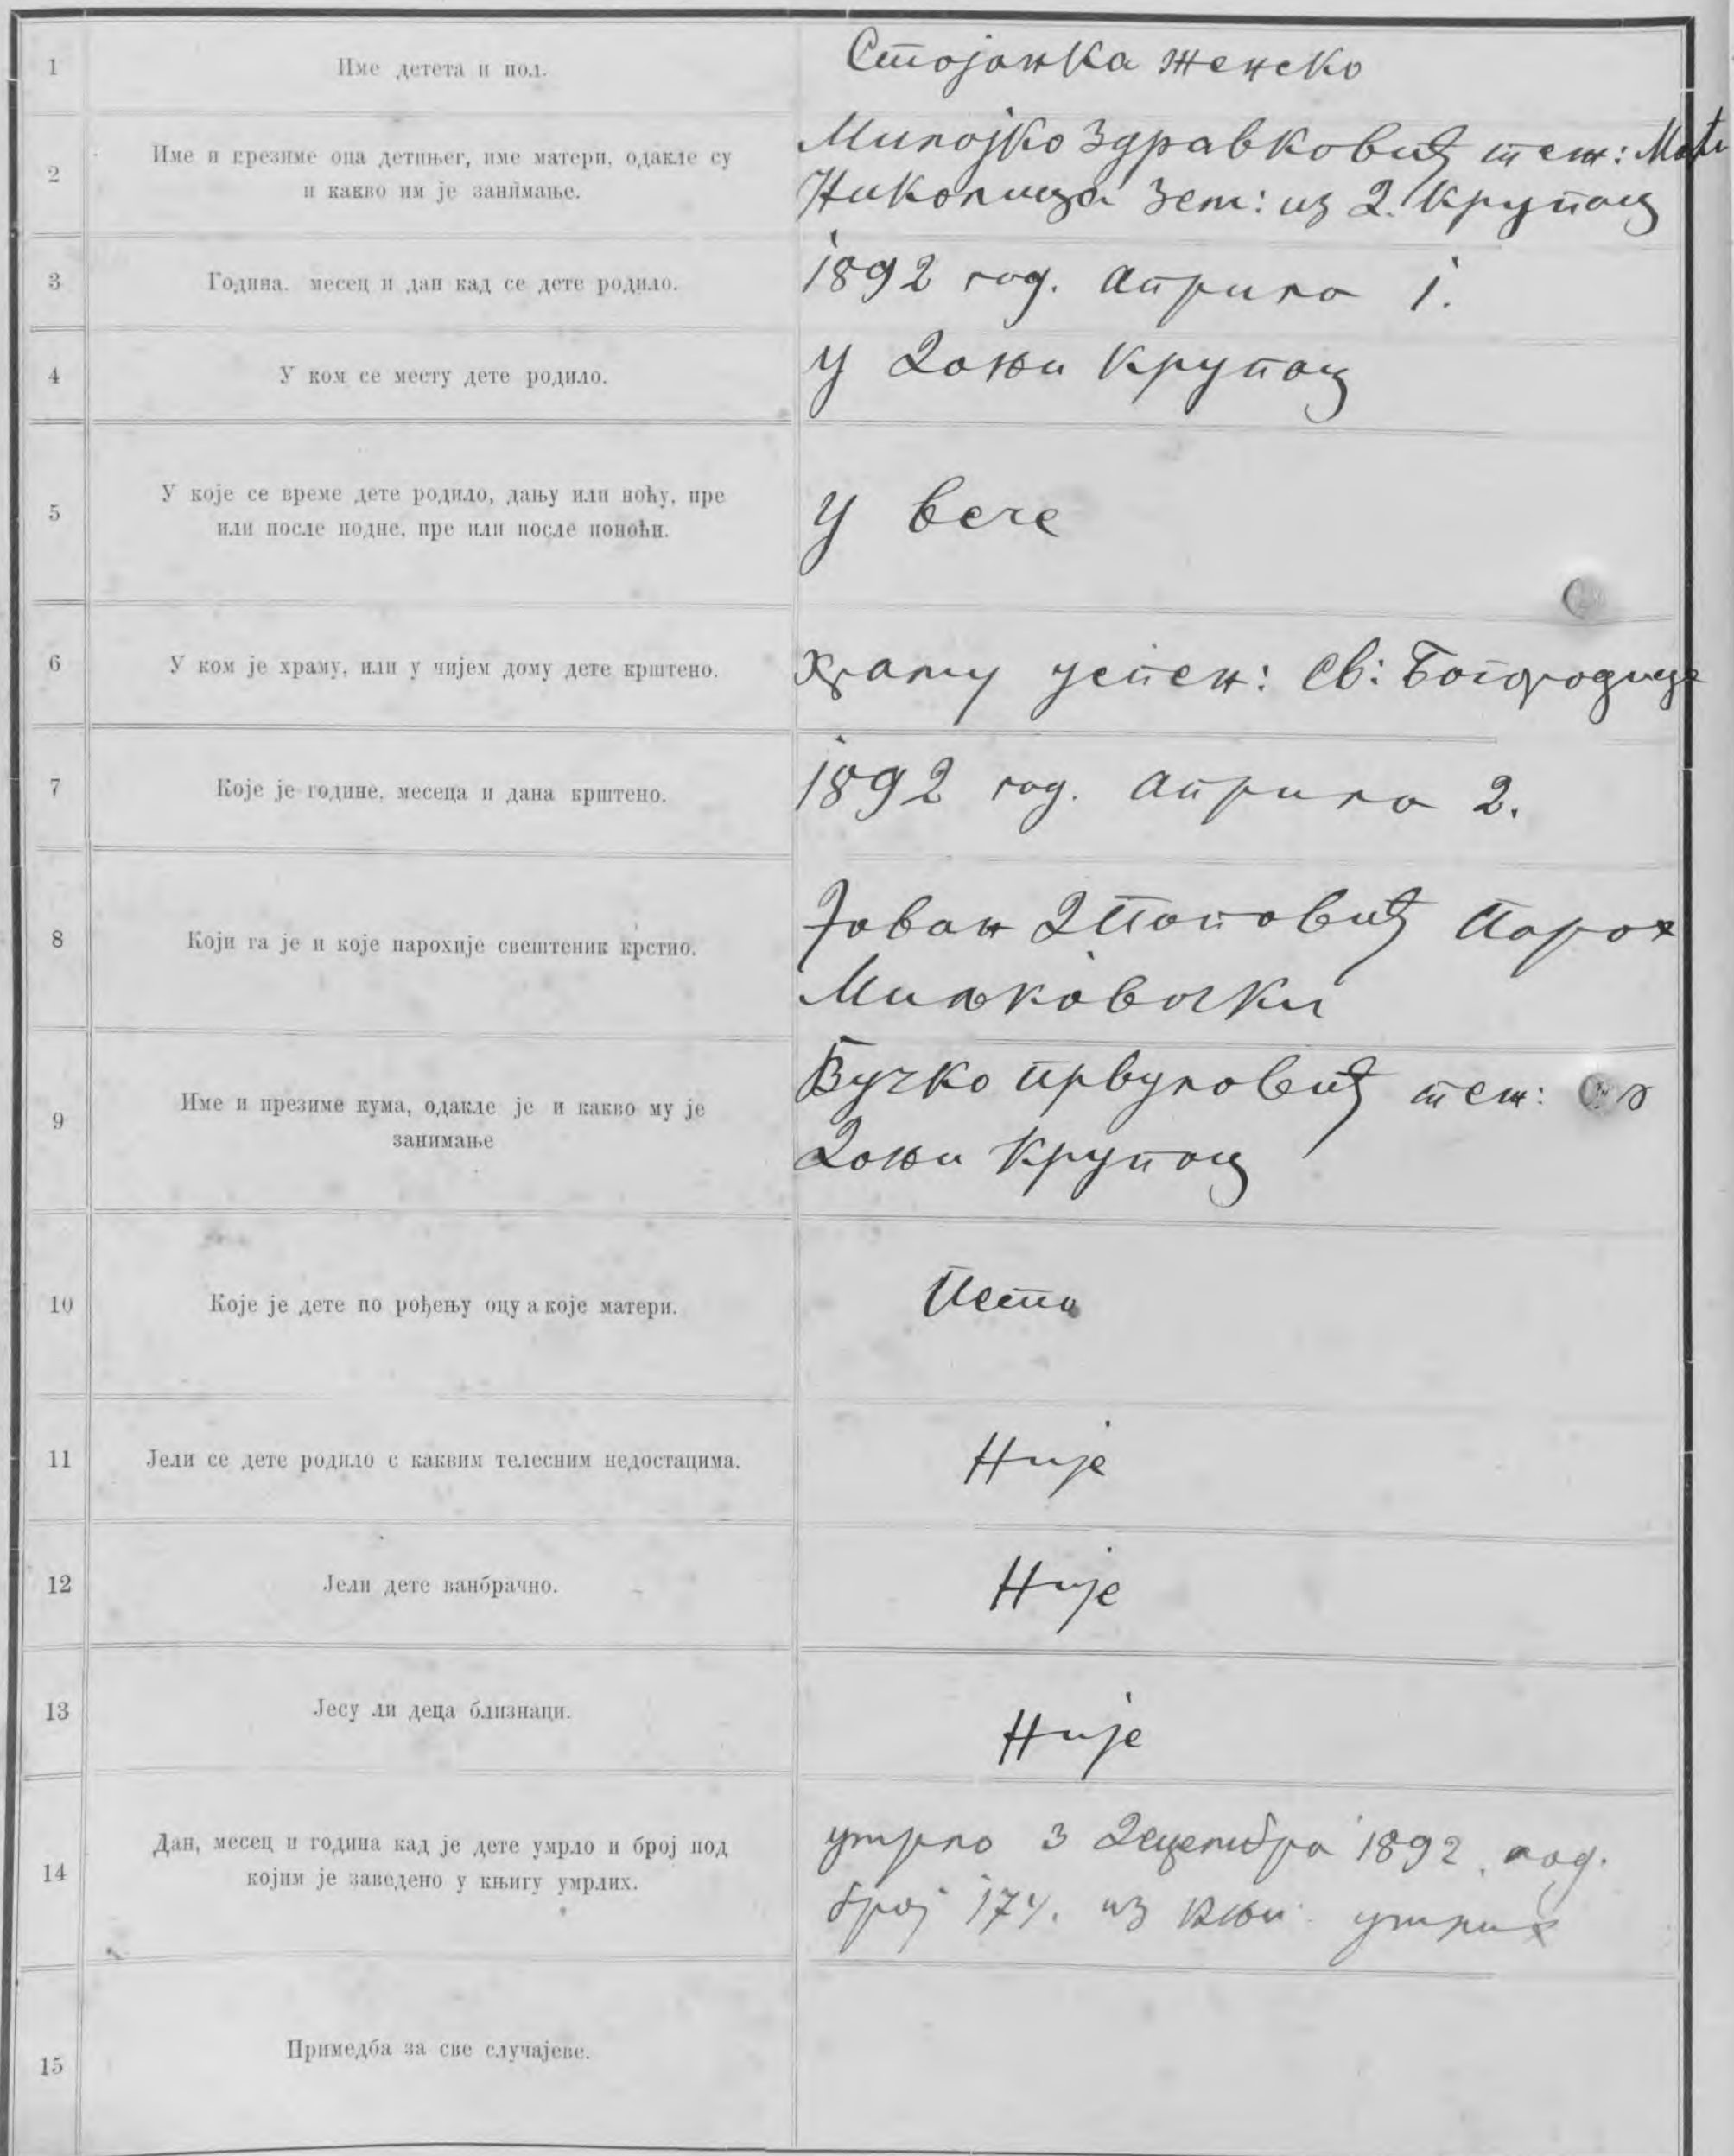 1
Име детета и пол.
Стојанка женско
2
Име и презиме оца детињег, име матери, одакле су
и какво им је занимање.
Милојко Здравковић теж: Мати
Николица Зем: из Д. Крупац
3
Година. месец и дан кад се дете родило.
1892 год. Априла 1.
4
У ком се месту дете родило.
У Доњи Крупац
5
У које се време дете родило, дању или ноћу, пре
или после подне, пре или после поноћи.
У вече
6
У ком је храму, или у чијем дому дете крштено.
Храму успен: Св: Богородице
7
Које је године, месеца и дана крштено.
1892 год. Априла 2.
8
Који га је и које парохије свештеник крстио.
Јован Д Поповић Парох
Миљковачки
9
Име и презиме кума, одакле је и какво му је
занимање
Вучко Првуловић теж:
Доњи Крупац
10
Које је дете по рођењу оцу а које матери.
Пето
11
Јели се дете родило с каквим телесним недостацима.
Није
12
Јели дете ванбрачно.
Није
13
Јесу ли деца близнаци.
Није
14
Дан, месец и година кад је дете умрло и број под
којим је заведено у књигу умрлих.
умрло 3 Децембра 1892. год.
број 174. из књи: умрлих
15
Примедба за све случајеве.